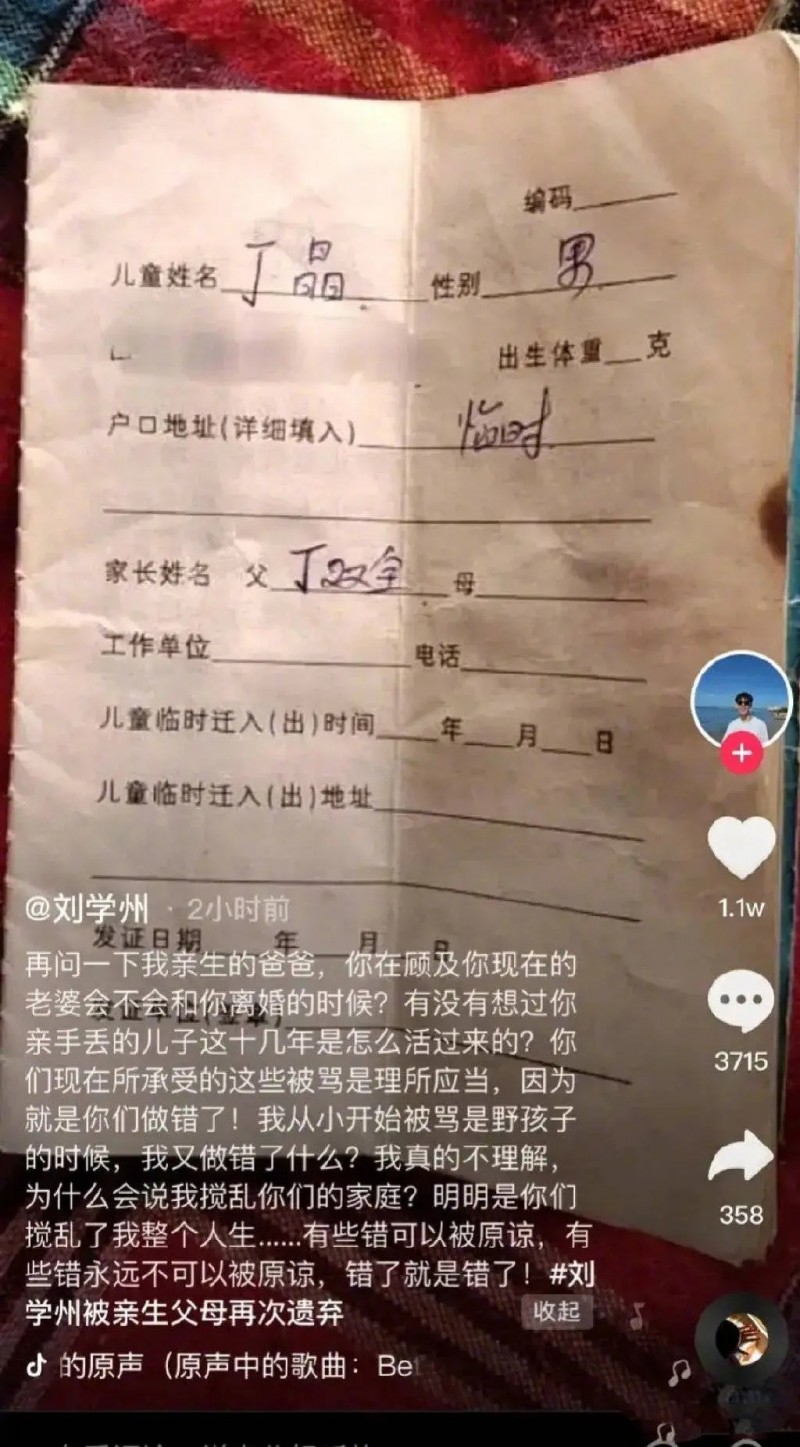 编码
儿童姓名 丁晶 性别 男
出生体重 克
户口地址(详细填入) 临时
家长姓名 父 丁双全 母
工作单位 电话
儿童临时迁入(出)时间 年 月 日
儿童临时迁入(出)地址
1.1w
@刘学州 · 2小时前
发证日期 年 月 日
再问一下我亲生的爸爸，你在顾及你现在的
老婆会不会和你离婚的时候？有没有想过你
发证单位(签章)
亲手丢的儿子这十几年是怎么活过来的？你
3715
们现在所承受的这些被骂是理所应当，因为
就是你们做错了！我从小开始被骂是野孩子
的时候，我又做错了什么？我真的不理解，
为什么会说我搅乱你们的家庭？明明是你们
358
搅乱了我整个人生......有些错可以被原谅，有
些错永远不可以被原谅，错了就是错了！#刘
学州被亲生父母再次遗弃 收起
的原声（原声中的歌曲：Be